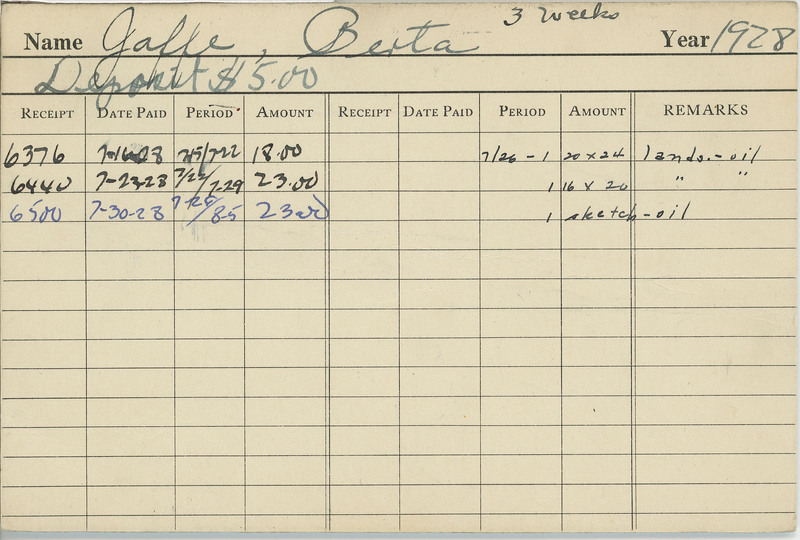 3 weeks
Name Jaffe, Berta Year 1928
Deposit $5.00
RECEIPT DATE PAID PERIOD AMOUNT RECEIPT DATE PAID PERIOD AMOUNT REMARKS
6376 7-16-28 7/15/7-22 18.00 7/26 - 1 20 x 24 lands.-oil
6440 7-23-28 7/22/7-29 23.00 1 16 x 20 " "
6500 7-30-28 23.00 1 sketch-oil